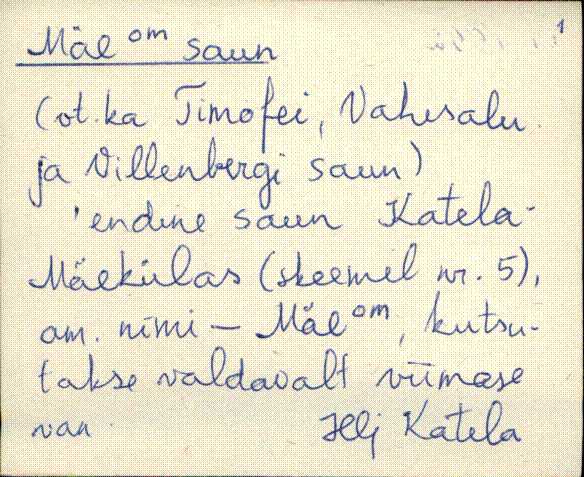 1
Mäe om saun
(vt. ka Timofei, Vahesalu
ja Villenbergi saun)
'endine saun Katela-
Mäekülas (skeemel nr. 5),
am. nimi – Mäe om, kutsu-
takse valdavalt viimase
van Hlj Katela